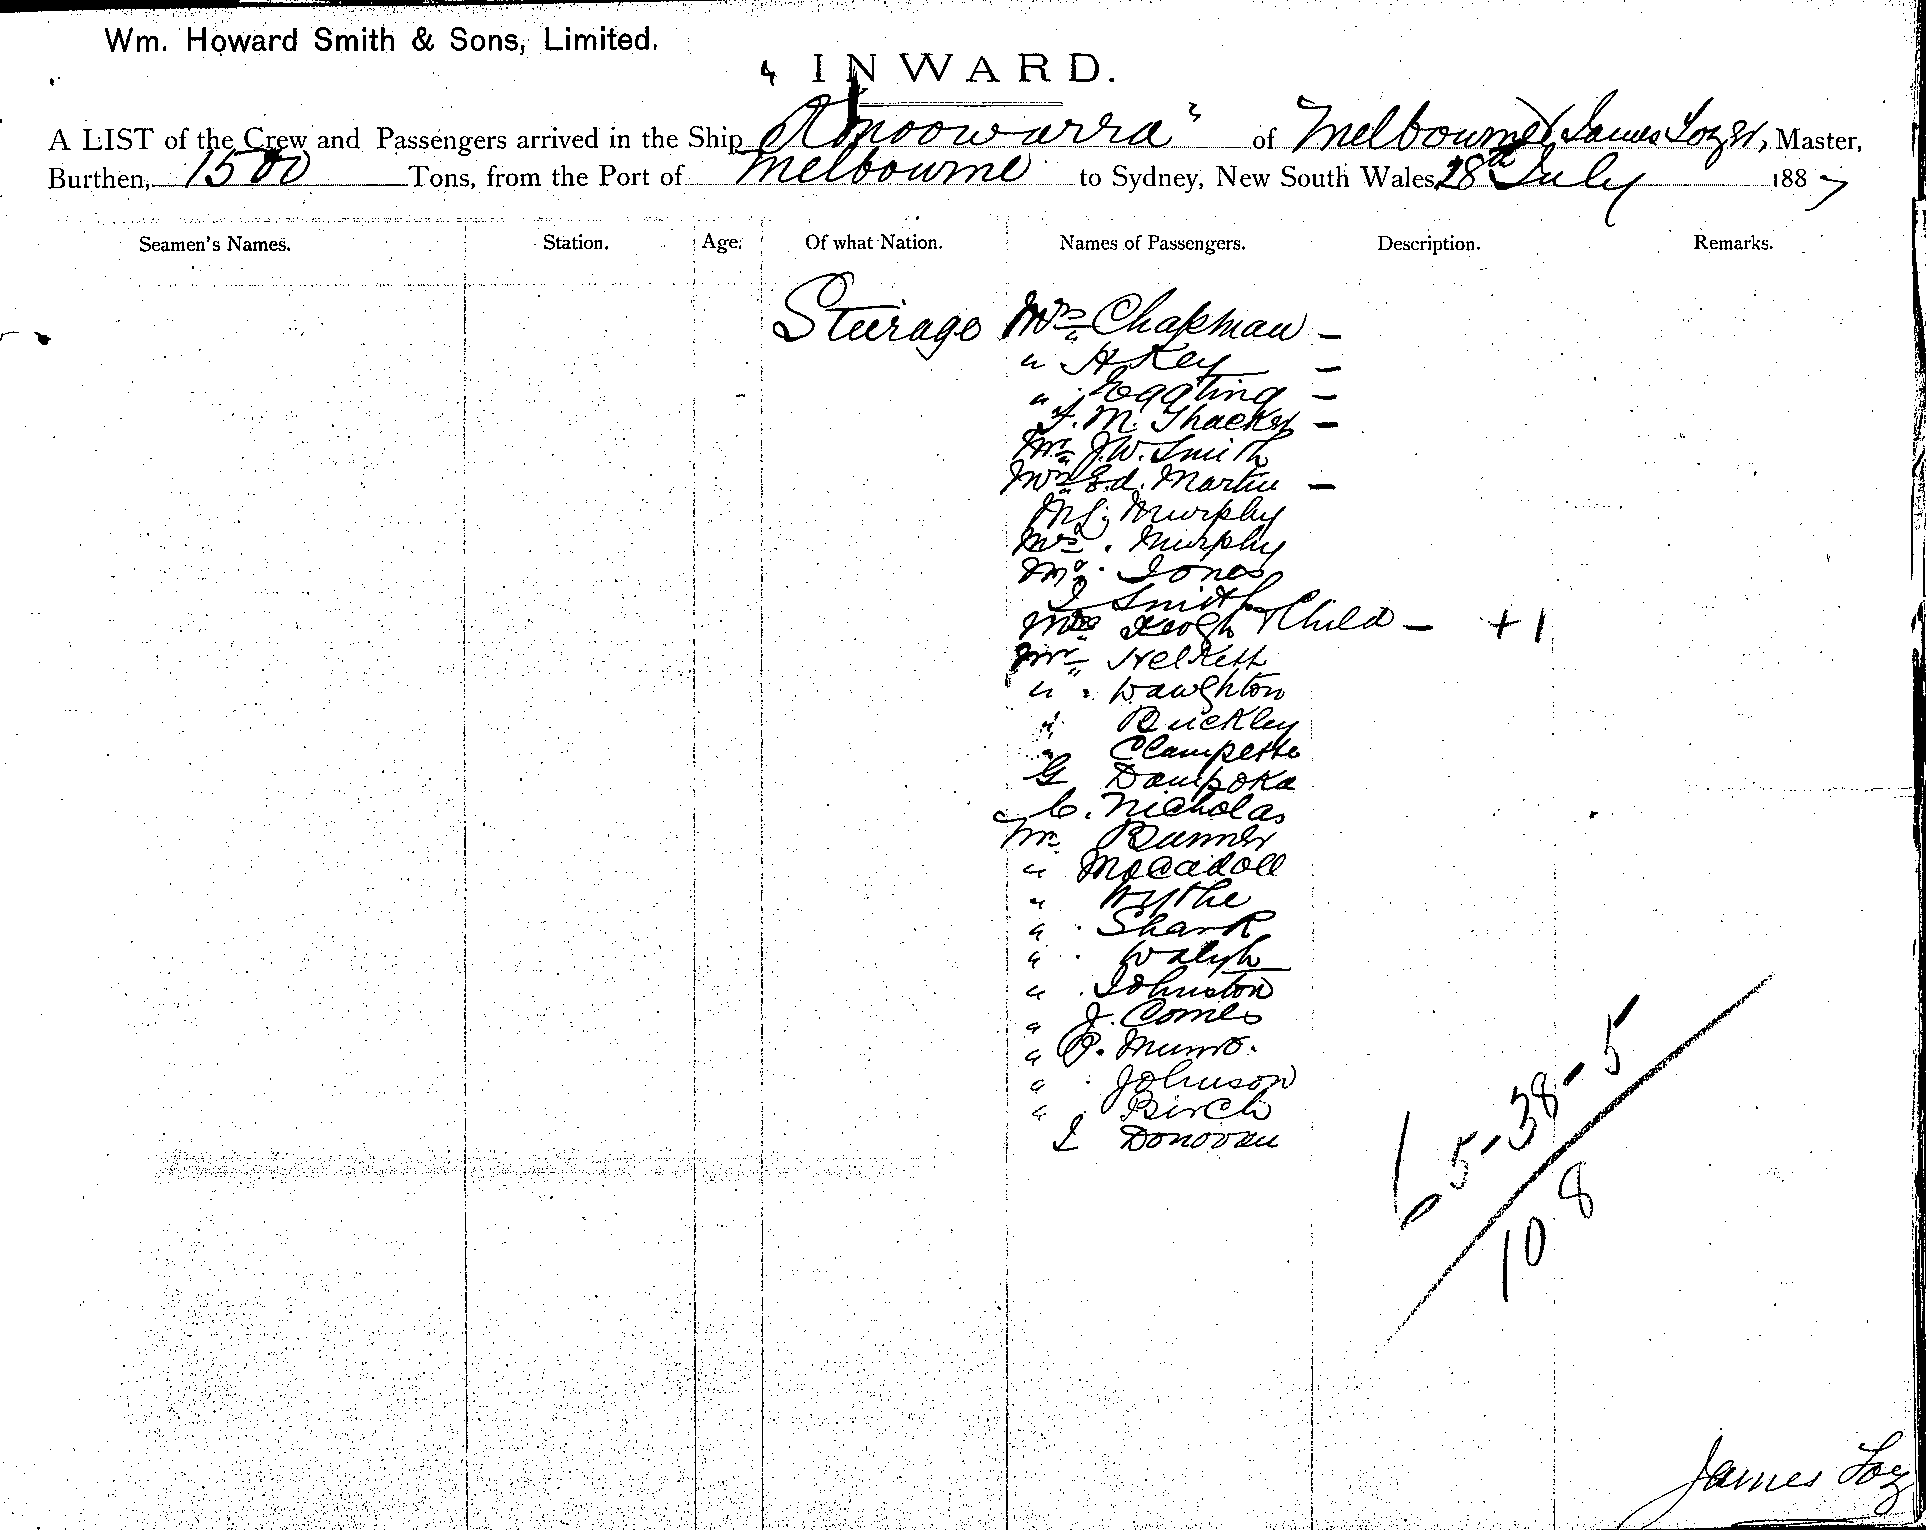 Wm. Howard Smith & Sons, Limited.
INWARD.
A LIST of the Crew and Passengers arrived in the Ship "Konoowarra" of Melbourne, James Lozer, Master,
Burthen, 1500 Tons, from the Port of Melbourne to Sydney, New South Wales 28th July 1887
Seamen's Names. Station. Age. Of what Nation. Names of Passengers. Description. Remarks.
Steirage Mrs Chapman –
" H Key –
" Eggting –
F. M. Thacker –
Mr J.W. Smith
Mrs Ed. Martin –
Murphy
Mrs. Murphy
Jones
Smith
Keogh & Child – + 1
Mr
" Daughton
" Buckley
" Clampette
G Dampoka
C. Nicholas
Mr Banner
"
"
" Shark
" Walsh
" Johnston
" J. Comes
" P. Munro.
" Johnson
" Birch
J Donovan
65-38-5
108
James Loz